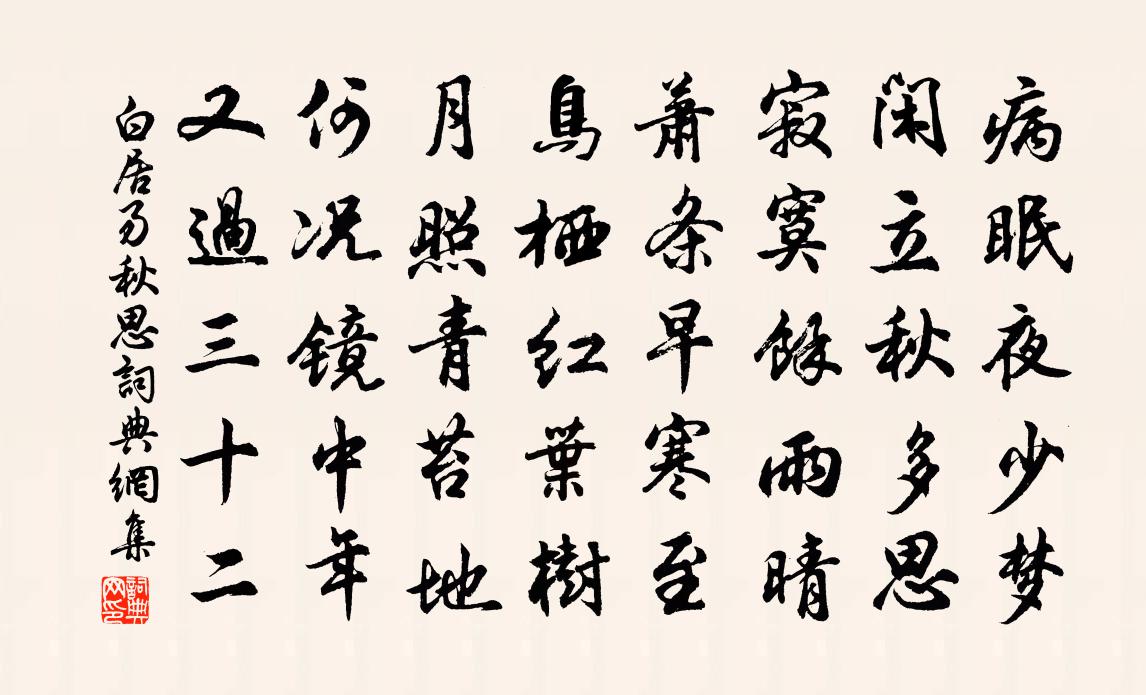 病眠夜少梦
閑立秋多思
寂寞餘雨晴
蕭条早寒至
鳥栖红葉樹
月照青苔地
何况镜中年
又過三十二
白居易秋思詞典網集
詞典网印